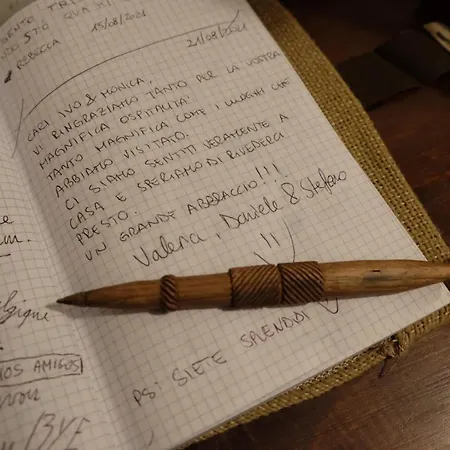 15/08/2021
REBECCA
21/08/2021
CARI IVO & MONICA,
VI RINGRAZIAMO TANTO PER LA VOSTRA
MAGNIFICA OSPITALITA'
TANTO MAGNIFICA COME I LUOGHI CHE
ABBIAMO VISITATO.
CI SIAMO SENTITI VERAMENTE A
CASA E SPERIAMO DI RIVEDERCI
PRESTO.
UN GRANDE ABBRACCIO!!!
Valeria, Daniele & Stefano
PS: SIETE SPLENDIDI
AMIGOS
BYE